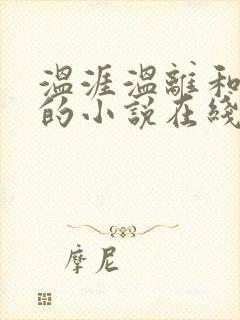 温涯温離和
的小説在綫
摩尼